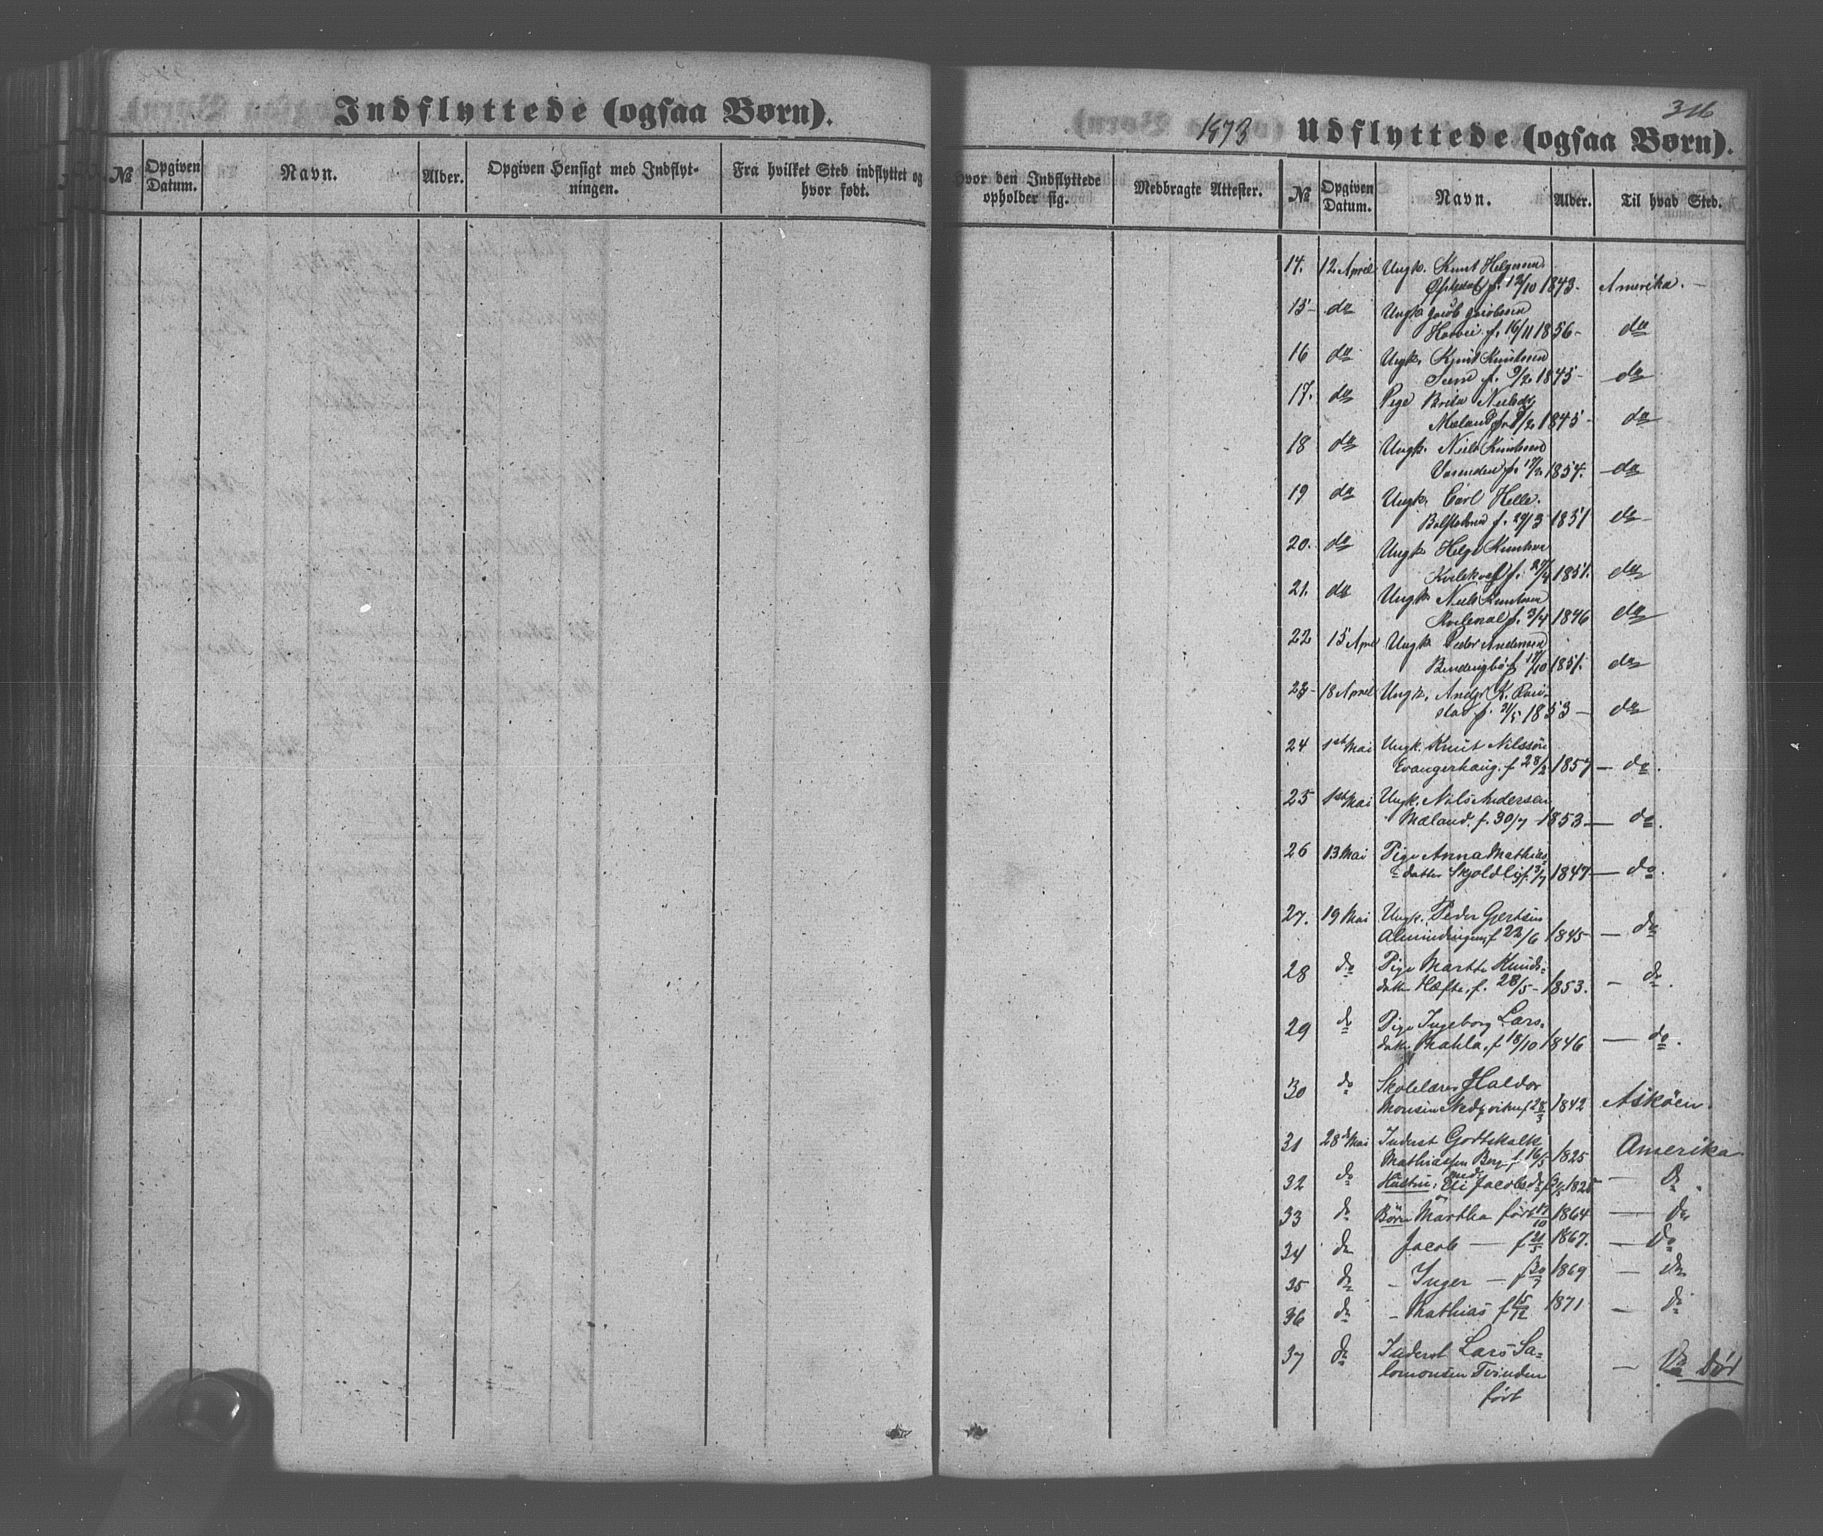 Indflyttede (ogsaa Børn).
№
Opgiven Datum.
Navn.
Alder.
Opgiven Hensigt med Indflyt-
ningen.
Fra hvilket Sted indflyttet og
hvor født.
Hvor den Indflyttede
opholder sig.
Medbragte Attester.
316
1873 Udflyttede (ogsaa Børn).
№
Opgiven Datum.
Navn.
Alder.
Til hvad Sted.
14. 12 April Ungk. Knut Helgesen
f. 12/10 1843. Amerika.
15 do Ungk Jacob Jacobsen
f. 16/11 1856 do
16 do Ungk. Knut Knutsen
f. 9/2 1845 do
17. do Pige Brita Nielsdtr
Mæland 1845 do
18 do Ungk. Niels Knutsen
f. 17/2 1854. do
19 do Ungk. Carl Helle.
f. 29/3 1851 do
20. do Ungk Helge Knutsen
f. 27/4 1851. do
21. do Ungk Niels Knutsen
f. 3/4 1846 do
22 15 April Ungk. Peder Andersen
f. 17/10 1851. do
23 18 April Ungk. Andr. K.
stad f. 21/5 1853 do
24 1ste Mai Ungk. Knut Nilssøn
Evangerhaug. f 28/2 1857 do.
25 1ste Mai Ungk. Nils Andersen
Mæland. f. 30/7 1853 do.
26 13 Mai Pige Anna Mathias-
datter Skjoldli f. 3/7 1847 do.
27. 19 Mai Ungk. Peder Gjertsen
Almindingen, f 22/6 1845 do
28 do Pige Martha Knuds-
datter Hæfte, f. 28/5 1853. do.
29 do Pige Ingeborg Lars-
datter f 18/10 1846 do.
30 do Skolelærer Haldor
Monsen f 28/3 1842 Askøen.
31 28de Mai Inderst Gottskalk
Mathiassen Berg f. 16/5 1825 Amerika
32 do Hustru, Eli Jacobsdtr 1825 do.
33 do Børn Martha født 17/10 1864 do
34 do Jacob f 21/5 1867. do
35 do Inger f 30/7 1869 do
36 do Mathias f 15/12 1871 do
37 do Inderst Lars Sa-
lomonsen Tvinden do Død
født